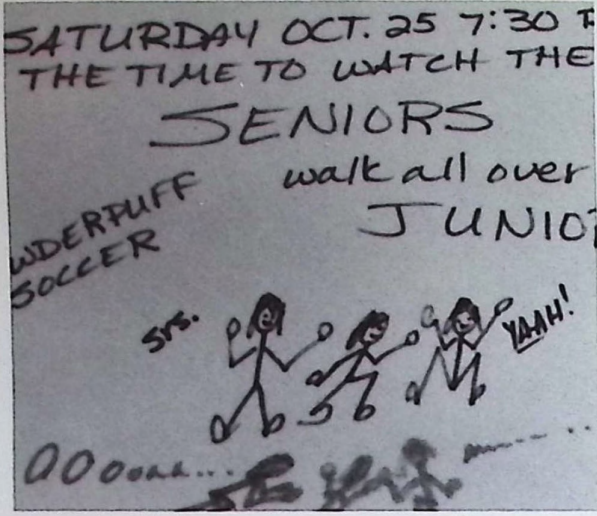 SATURDAY OCT. 25 7:30
THE TIME TO WATCH THE
SENIORS
walk all over
JUNIO
WDERPUFF
SOCCER
Srs.
YAAH!